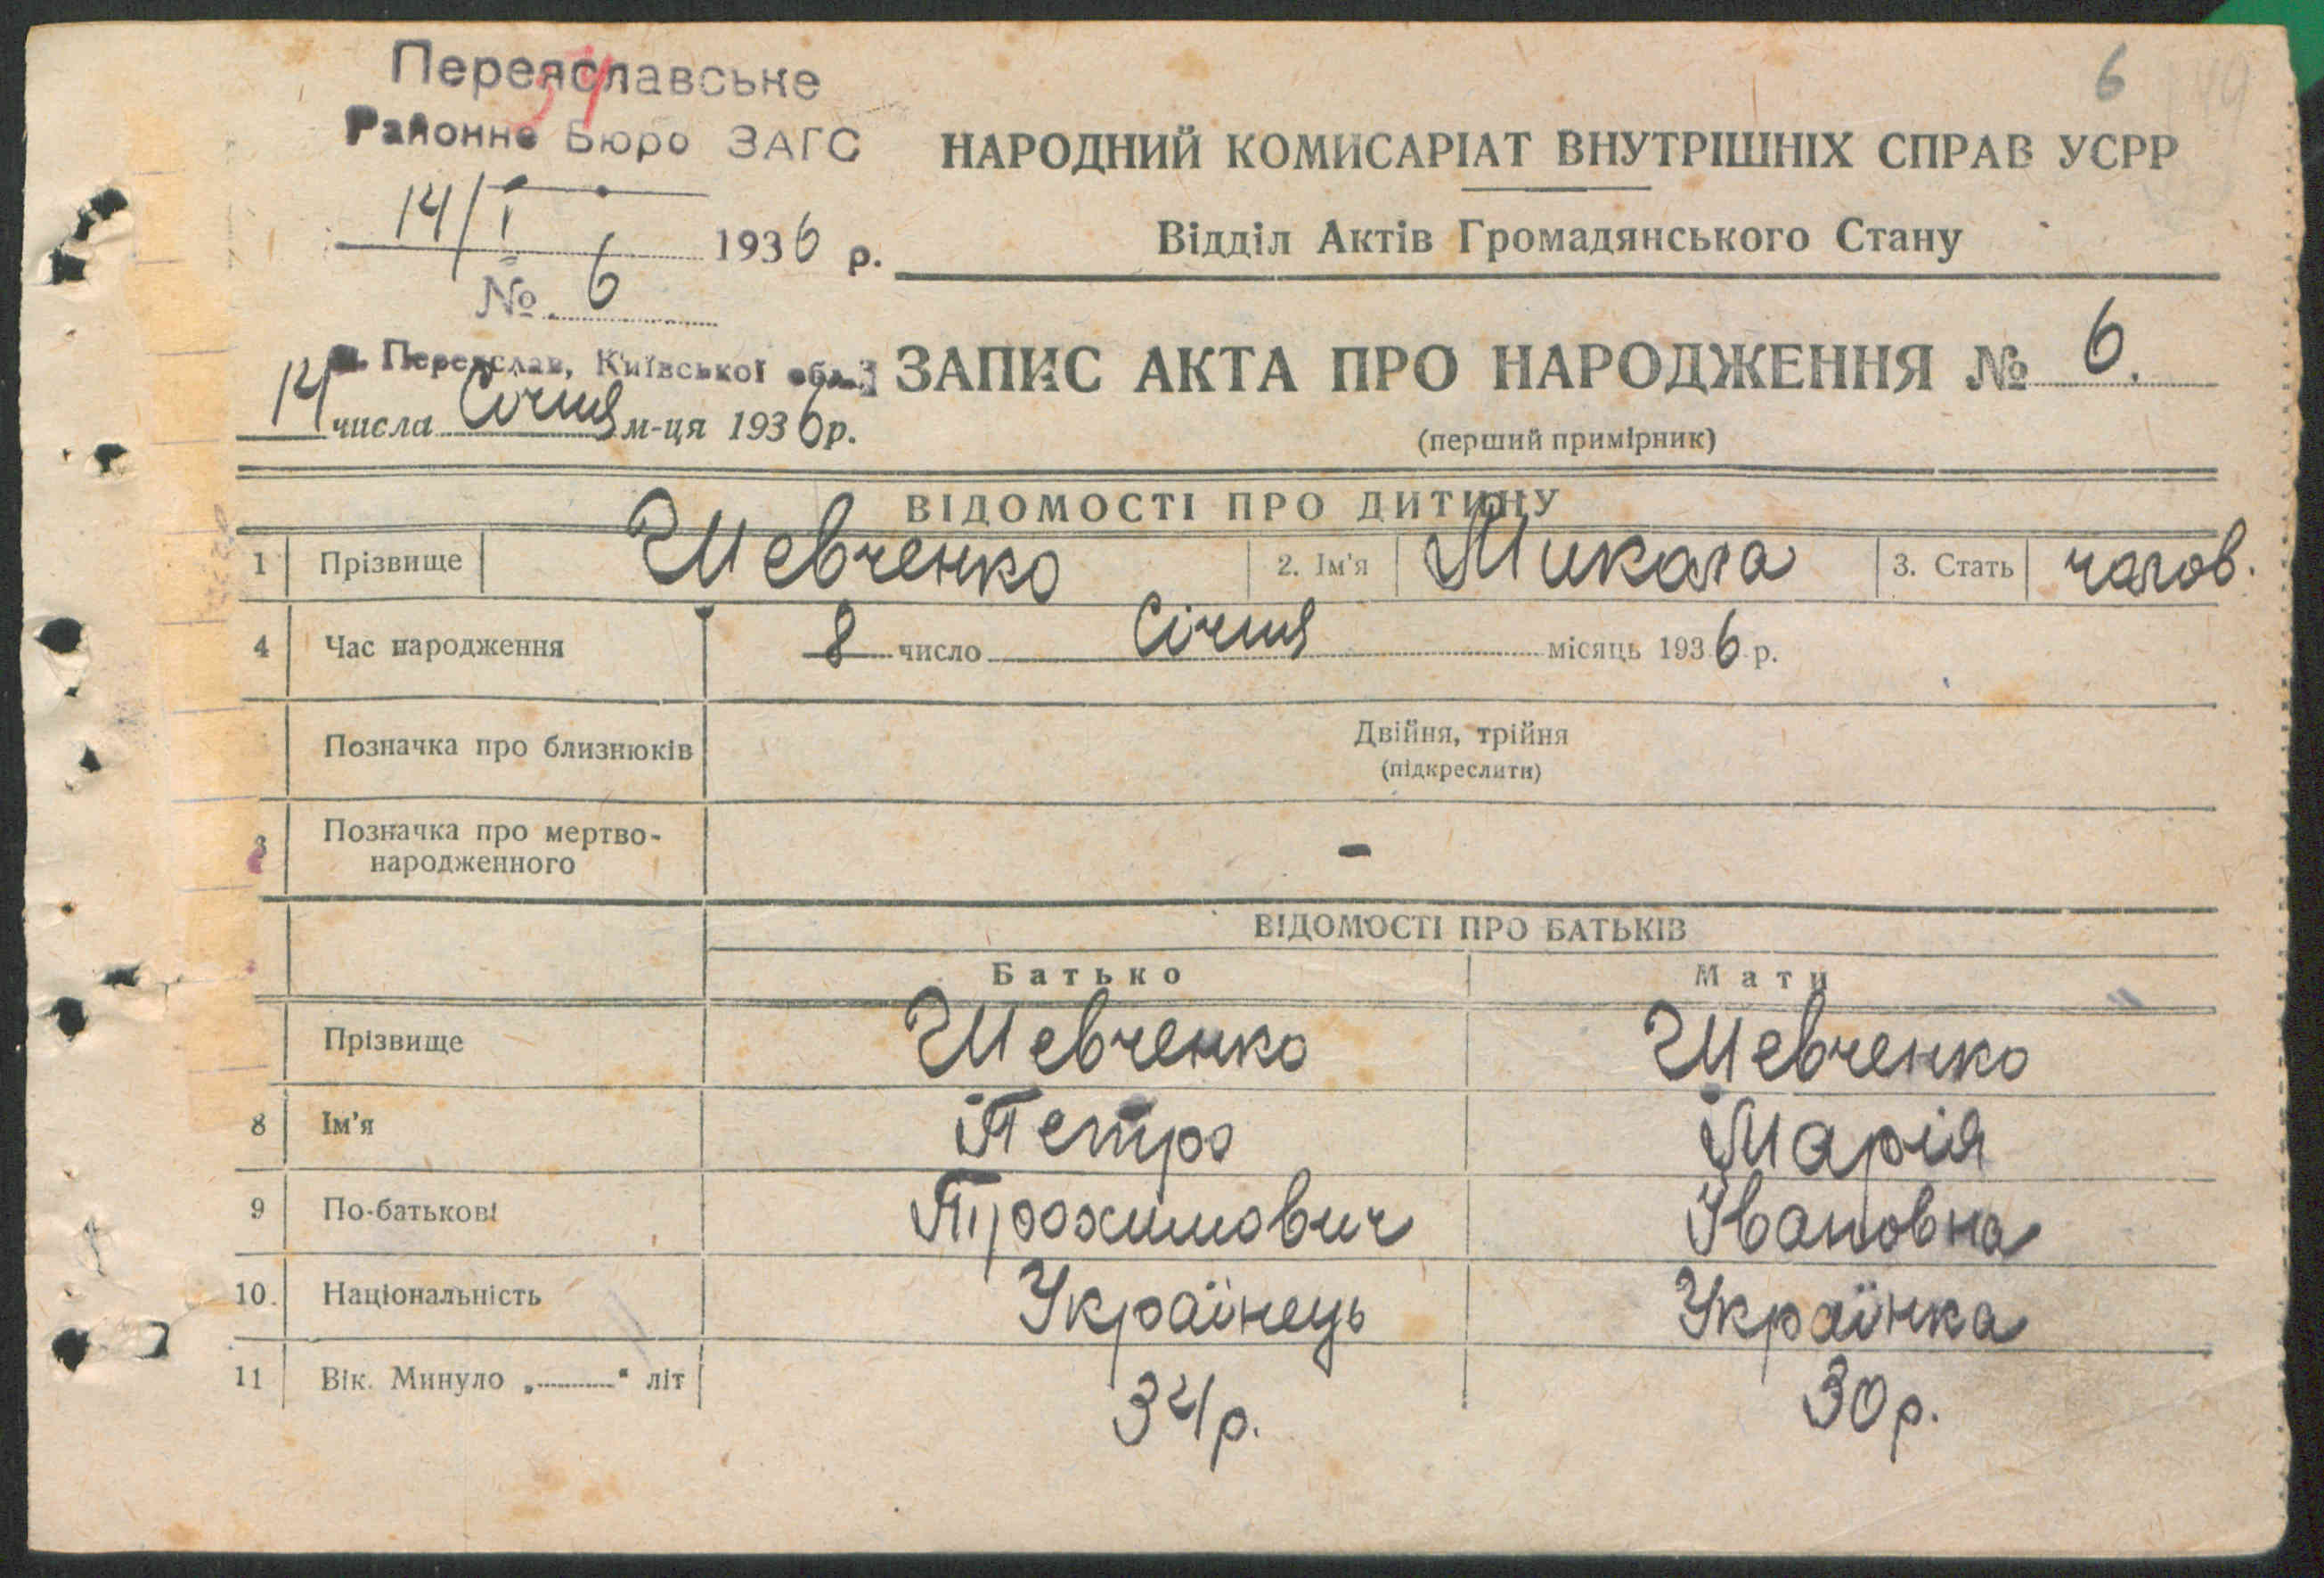 Переяславське
Районне Бюро ЗАГС
14/I 1936 р.
№ 6
м. Переяслав, Київської обл.
14 числа Січня м-ця 1936 р.
6
НАРОДНИЙ КОМИСАРІАТ ВНУТРІШНІХ СПРАВ УСРР
Відділ Актів Громадянського Стану
ЗАПИС АКТА ПРО НАРОДЖЕННЯ № 6.
(перший примірник)
ВІДОМОСТІ ПРО ДИТИНУ
1 Прізвище Шевченко 2. Ім'я Микола 3. Стать чолов.
4 Час народження 8 число Січня місяць 1936 р.
Позначка про близнюків Двійня, трійня
(підкреслити)
Позначка про мертво-
народженного -
ВІДОМОСТІ ПРО БАТЬКІВ
Батько Мати
Прізвище Шевченко Шевченко
8 Ім'я Петро Марія
9 По-батькові Трохимович Івановна
10. Національність Українець Українка
11 Вік. Минуло „----" літ 34 р. 30 р.